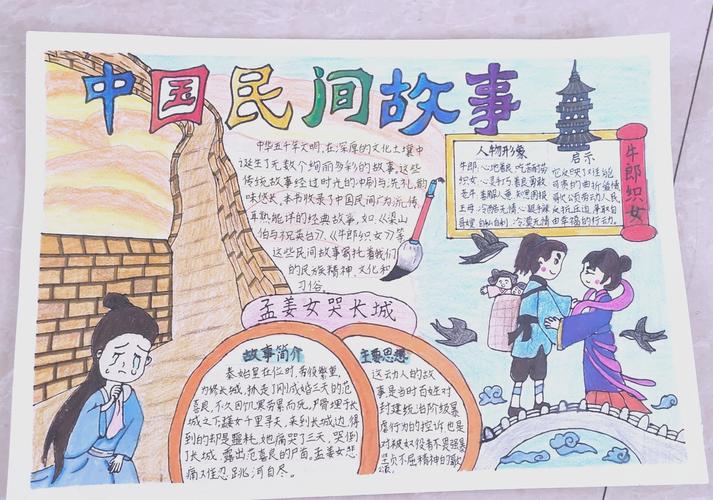 中国民间故事
中华五千年文明,在深厚的文化土壤中
诞生了无数个绚丽多彩的故事,这些
传统故事经过时光的冲刷与洗礼,韵
味悠长,本书收录了中国民间广为流传、
耳熟能详的经典故事,如《梁山
伯与祝英台》、《牛郎织女》等
这些民间故事寄托着我们
的民族精神、文化和
习俗。
人物形象
牛郎:心地善良,吃苦耐劳
织女:心灵手巧,善良勇敢
老牛:善解人意,知恩图报
王母:冷酷无情,心狠手辣
启示
牛郎织女
孟姜女哭长城
故事简介
秦始皇在位时,劳役繁重,
为修长城,抓走了刚成婚三天的范
喜良,不久因饥寒劳累而死,尸骨埋于长
城之下,姜女千里寻夫,来到长城边,得
到的却是噩耗,她痛哭了三天,哭倒
了长城,露出范喜良的尸首,孟姜女悲
痛之怪忍跳河自尽。
主要思想
这动人的故
事是当时百姓对
封建统治阶级暴
虐行为的控诉也是
对被奴役者不畏强暴
坚贞不屈精神的歌
颂。